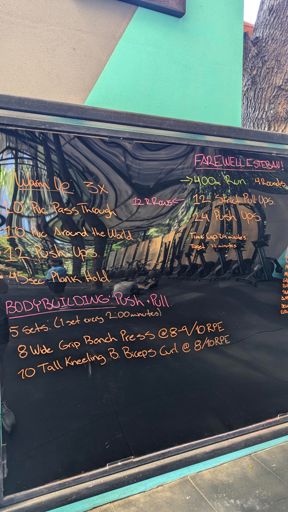 Warm Up 3x
10 PVC Pass Through
10 PVC Around the World
12 Push Ups
45sec Plank Hold
BODYBUILDING: Push + Pull
5 Sets (1 set every 2:00 minutes)
8 Wide Grip Bench Press @ 8-9/10 RPE
10 Tall Kneeling B. Biceps Curl @ 8/10 RPE
FAREWELL ESTEBAN!
→400m Run 4Rounds
12 R Rows ← 12 Strict Pull Ups
24 Push Ups
Time Cap